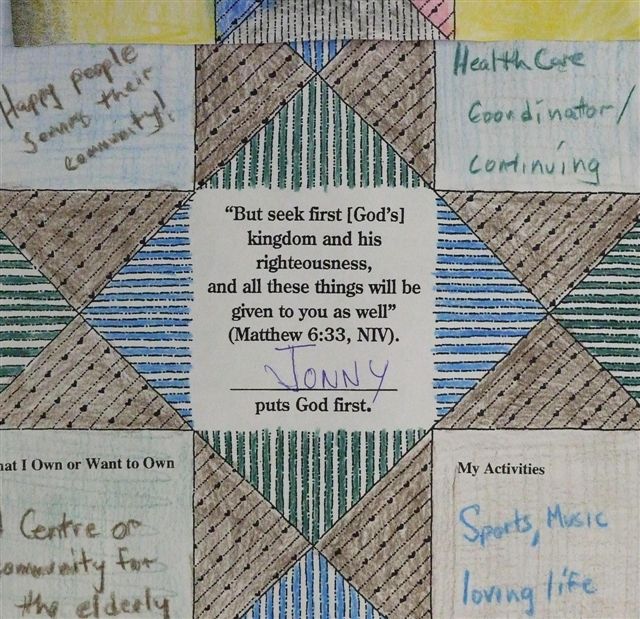 Happy people
serving their
community!
Health Care
Coordinator/
Continuing
"But seek first [God's]
kingdom and his
righteousness,
and all these things will be
given to you as well"
(Matthew 6:33, NIV).
JONNY
puts God first.
hat I Own or Want to Own
Centre or
ommunity for
the elderly
My Activities
Sports, Music
loving life